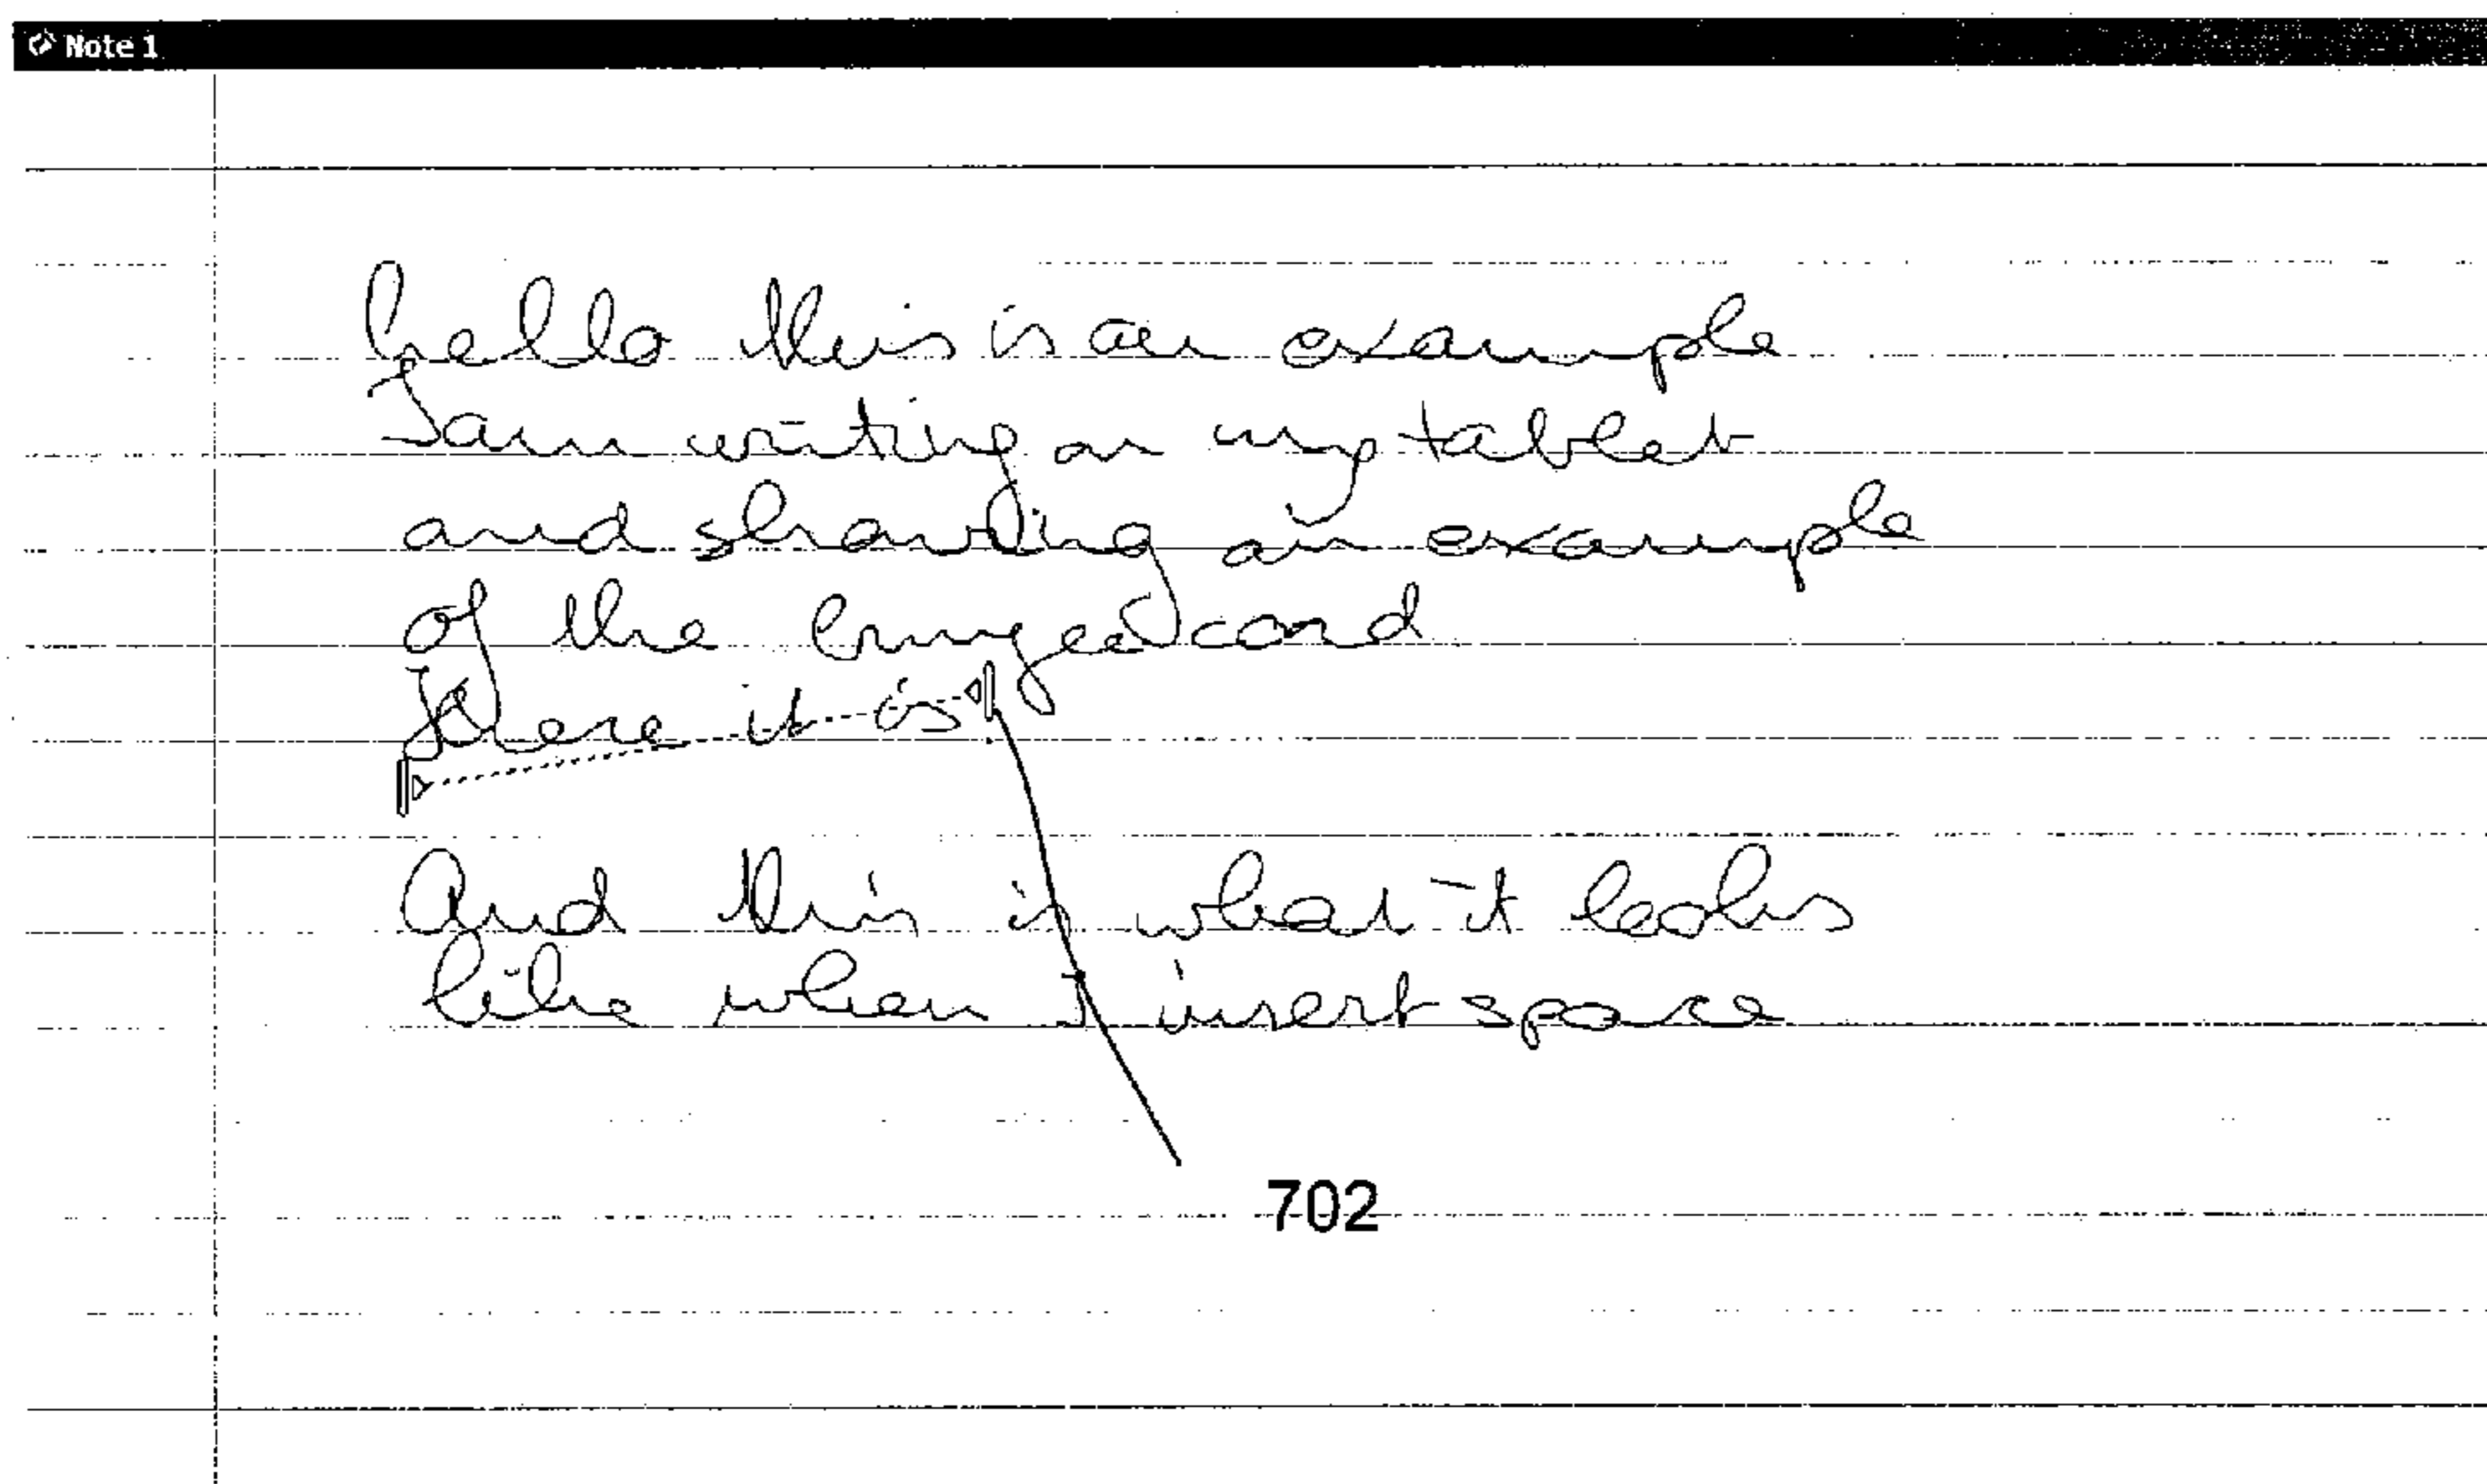 Note 1
hello this is an example
I am writing on my tablet
and showing an example
of the cord
Here it is
And this is what it looks
like when I insert space
702